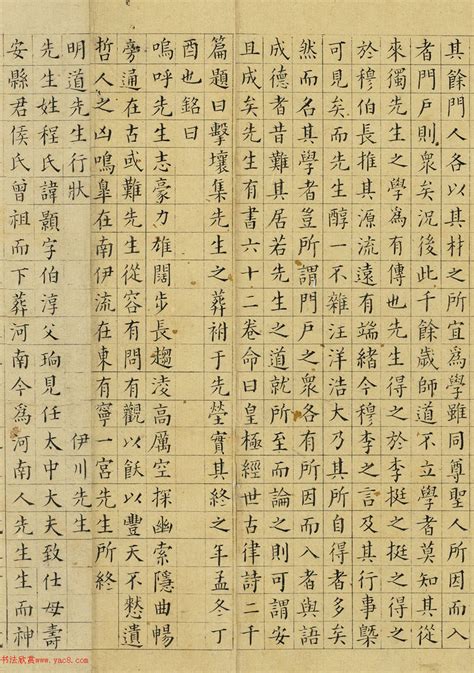 其餘門人各以其材之所宜爲學雖同尊聖人所因而入
者門戶則衆矣況後此千餘歲師道不立學者莫知其從
來獨先生之學爲有傳也先生得之於李挺之挺之得之
於穆伯長推其源流遠有端緒今穆李之言及其行事槩
可見矣而先生醇一不雜汪洋浩大乃其所自得者多矣
然而名其學者豈所謂門戶之衆各有所因而入者與語
成德者昔難其居若先生之道就所至而論之則可謂安
且成矣先生有書六十二卷命曰皇極經世古律詩二千
篇題曰擊壤集先生之葬祔于先塋實其終之年孟冬丁
酉也銘曰
嗚呼先生志豪力雄闊步長趨淩高厲空探幽索隱曲暢
旁通在古或難先生從容有問有觀以飫以豐天不憖遺
哲人之凶鳴臯在南伊流在東有寧一宮先生所終
明道先生行狀 伊川先生
先生姓程氏諱顥字伯淳父珦見任太中大夫致仕母壽
安縣君侯氏曾祖而下葬河南今爲河南人先生生而神
书法欣赏www.yac8.com